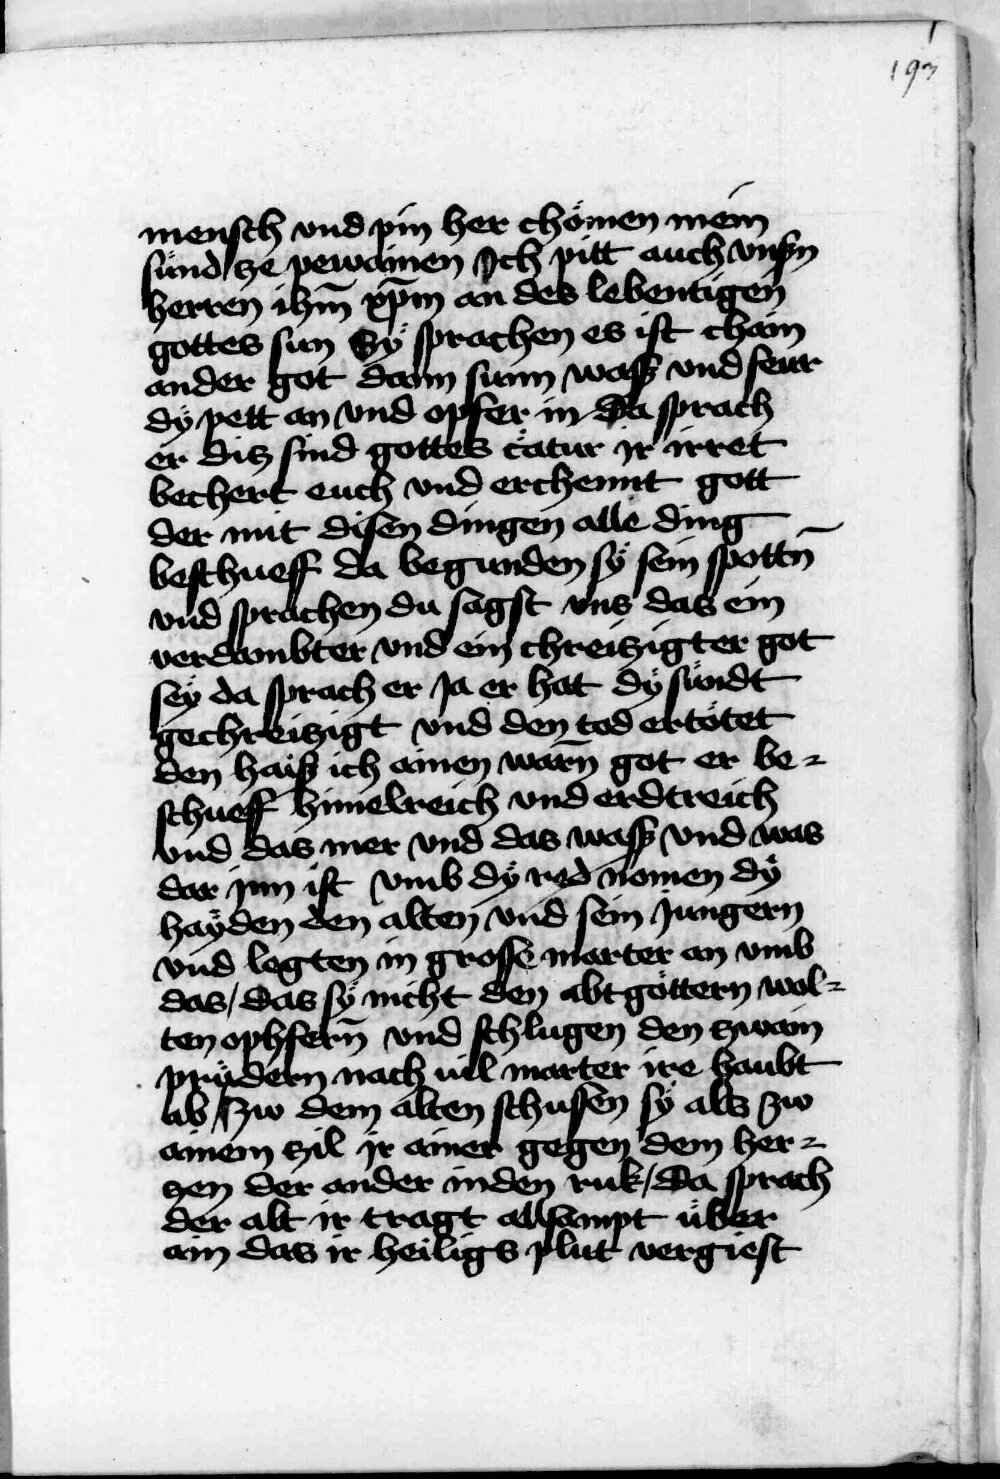 193
mensch vnd pin her chömen mein
sünd ze pewainen Ich pitt auch vnsn̄
herren ihm̄ xp̄m an des lebentigen
gottes sun Sÿ sprachen es ist chain
ander got dann sunn wass vnd feur
dÿ pett an vnd opfer in Da sprach
er dis sind gottes c̈atur ir irret
bechert euch vnd erchennt gott
der mit disen dingen alle ding
beschueff da begunden sÿ sein spottn̄
vnd sprachen du sagst vns das ein
verdambter vnd ein chreitzigter got
seÿ da sprach er Ja er hat dÿ sündt
gechreitzigt vnd den tod ertötet
den haiß ich ainen warn̄ got er be=
schueff himelreich vnd erdtreich
vnd das mer vnd das wass vnd was
dar jnn ist vmb dÿ red nomen dÿ
haÿden den alten vnd sein Jüngern
vnd legten in grosse marter an vmb
das / das sÿ nicht den abtgöttern wol=
ten ophfern̄ vnd schlugen den zwain
prüdern nach uil marter ire haubt
ab / Zw dem alten schussen sÿ als zw
ainem zil ir ainer gegen dem her=
zen der ander inden ruk / Da sprach
der alt ir tragt allsampt über
ain das ir heiligs plut vergiest